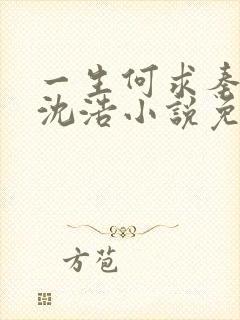 一生何求秦
沈浩小說免
方苞